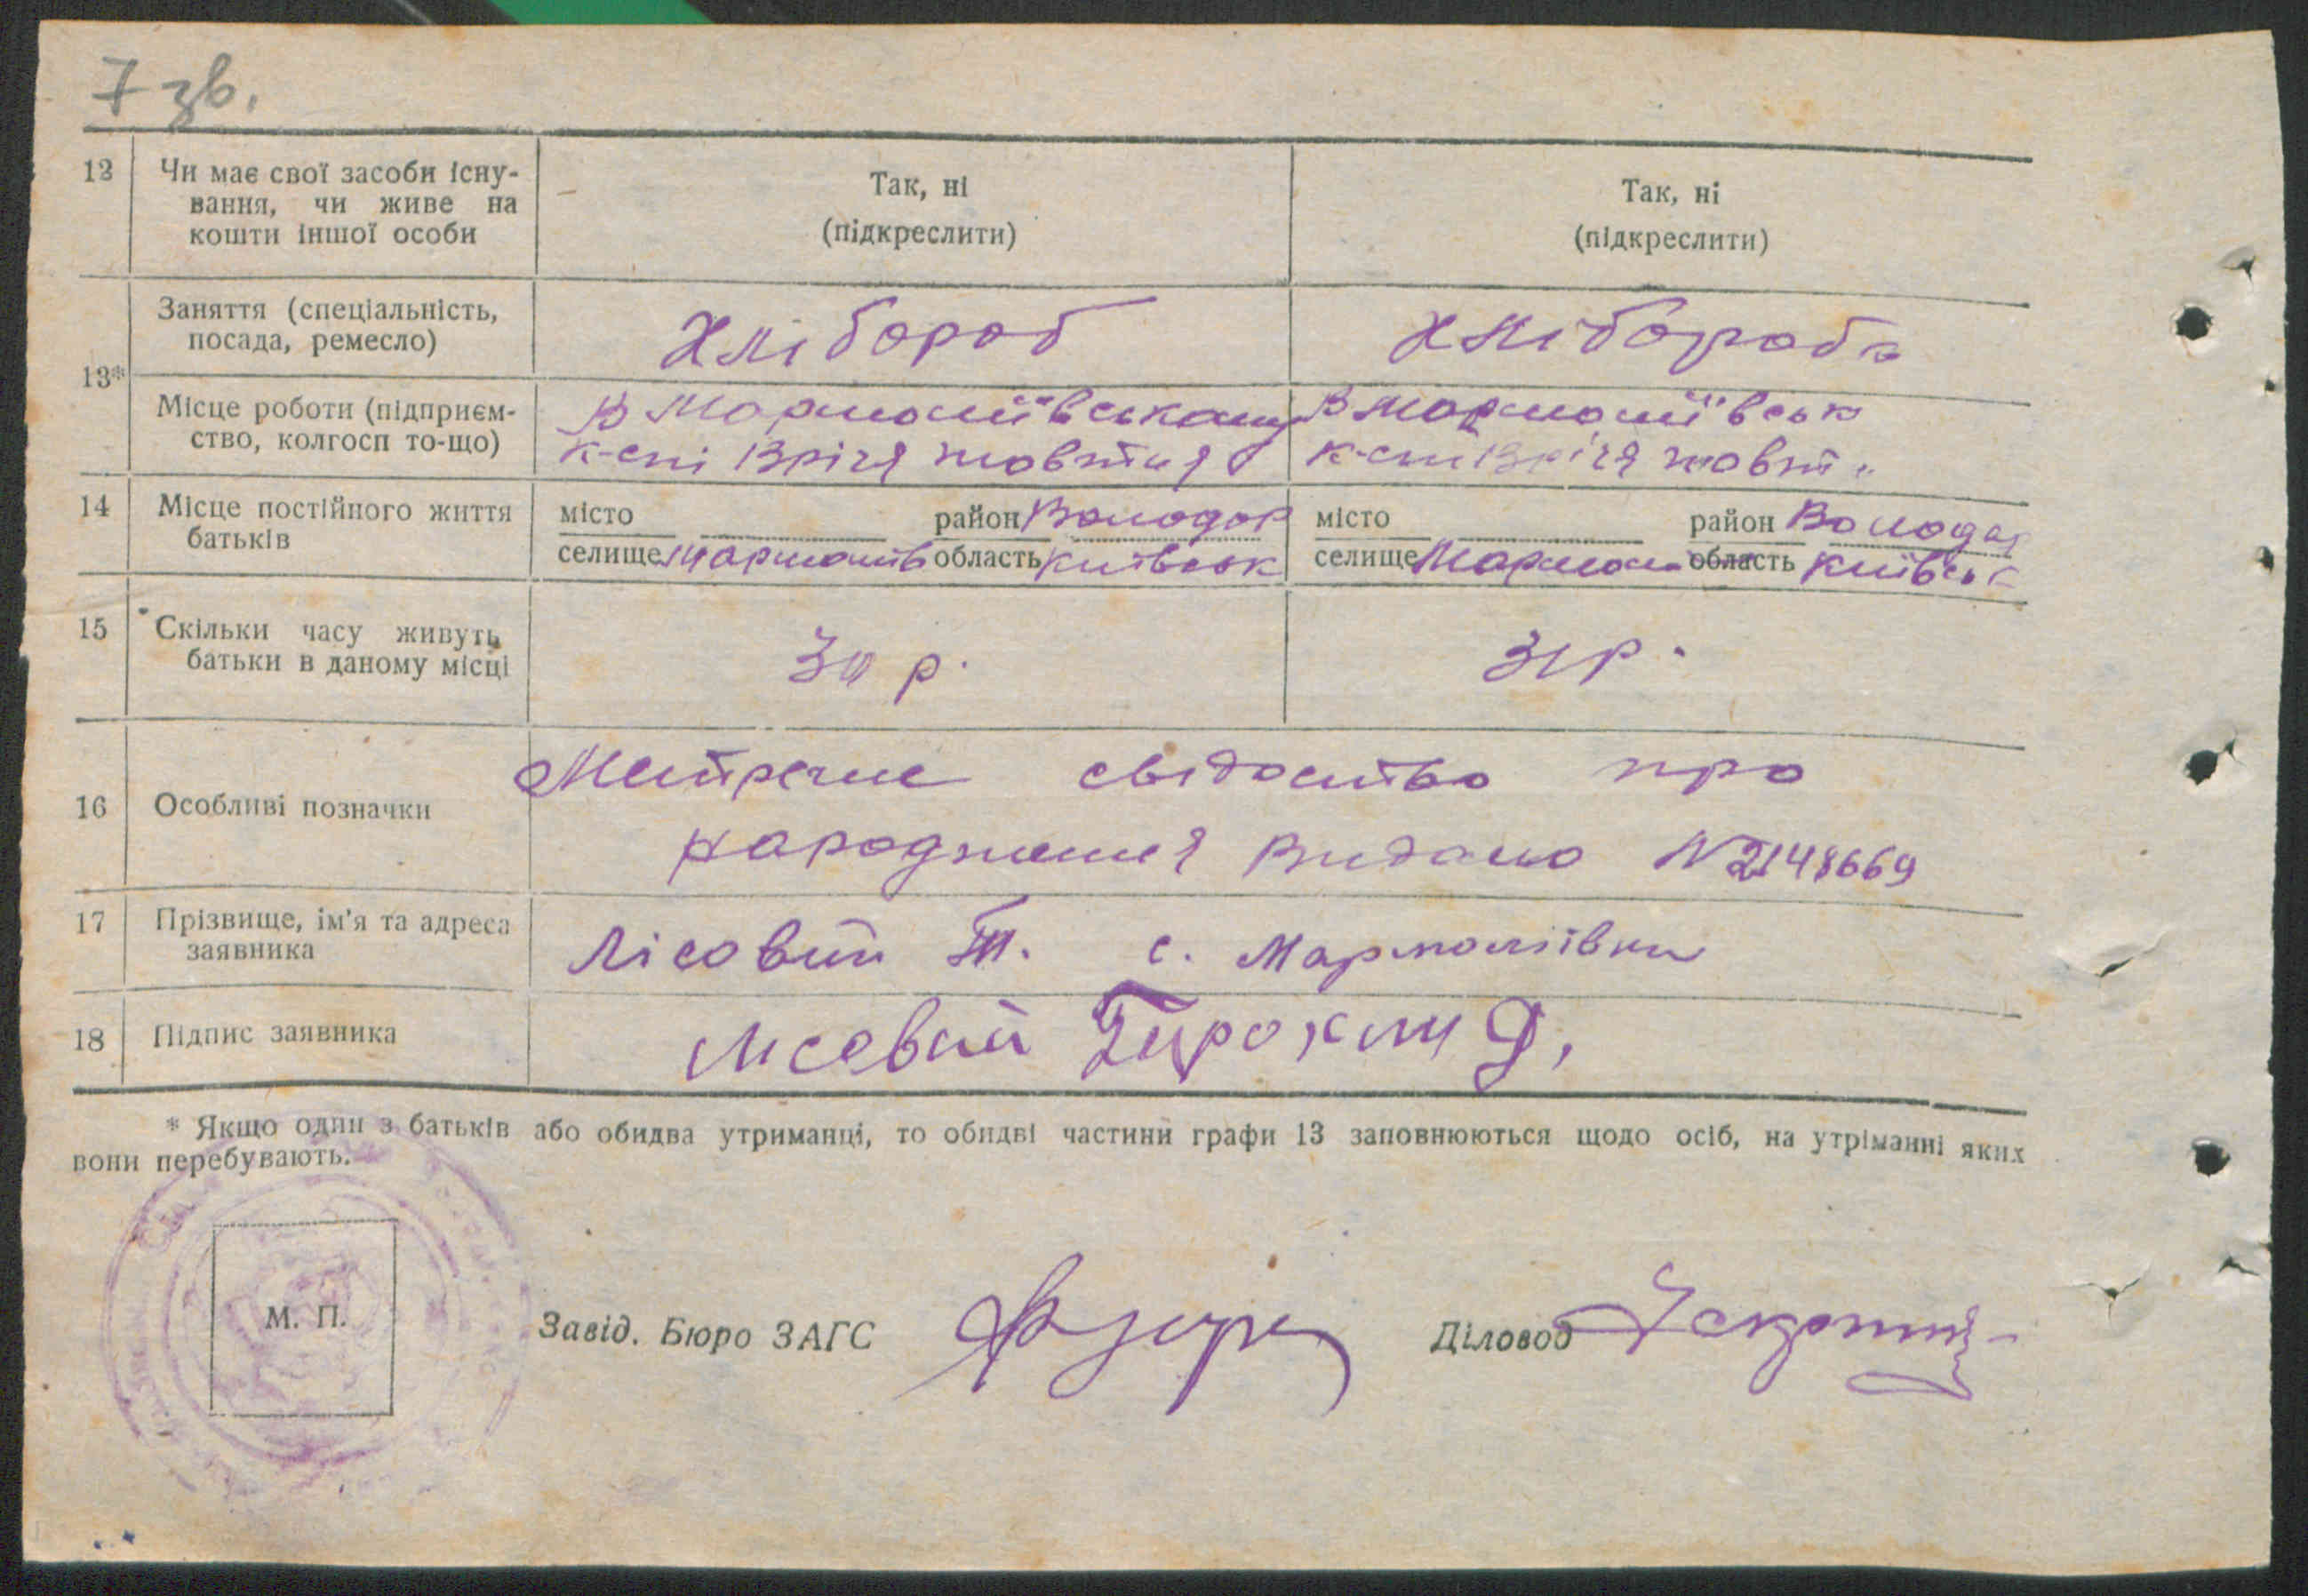 7 зв.
12 Чи має свої засоби існу- Так, ні Так, ні
вання, чи живе на
кошти іншої особи (підкреслити) (підкреслити)
13* Заняття (спеціальність, Хлібороб Хлібороб
посада, ремесло)
Місце роботи (підприєм- В Мармоліївському В Мармоліївськ
ство, колгосп то-що) к-спі річя жовтня к-спі річя жовтн
14 Місце постійного життя місто район Володар місто район Володар
батьків селище Мармоліїв область Київськ селище Мармол область Київськ
15 Скільки часу живуть 30 р. 31 р.
батьки в даному місці
Метричне свідоцтво про
16 Особливі позначки
народження видано N 2148669
17 Прізвище, ім'я та адреса Лісовий Т. с. Мармоліївки
заявника
18 Підпис заявника Лисовий
* Якщо один з батьків або обидва утриманці, то обидві частини графи 13 заповнюються щодо осіб, на утріманні яких
вони перебувають.
М. П. Завід. Бюро ЗАГС Діловод